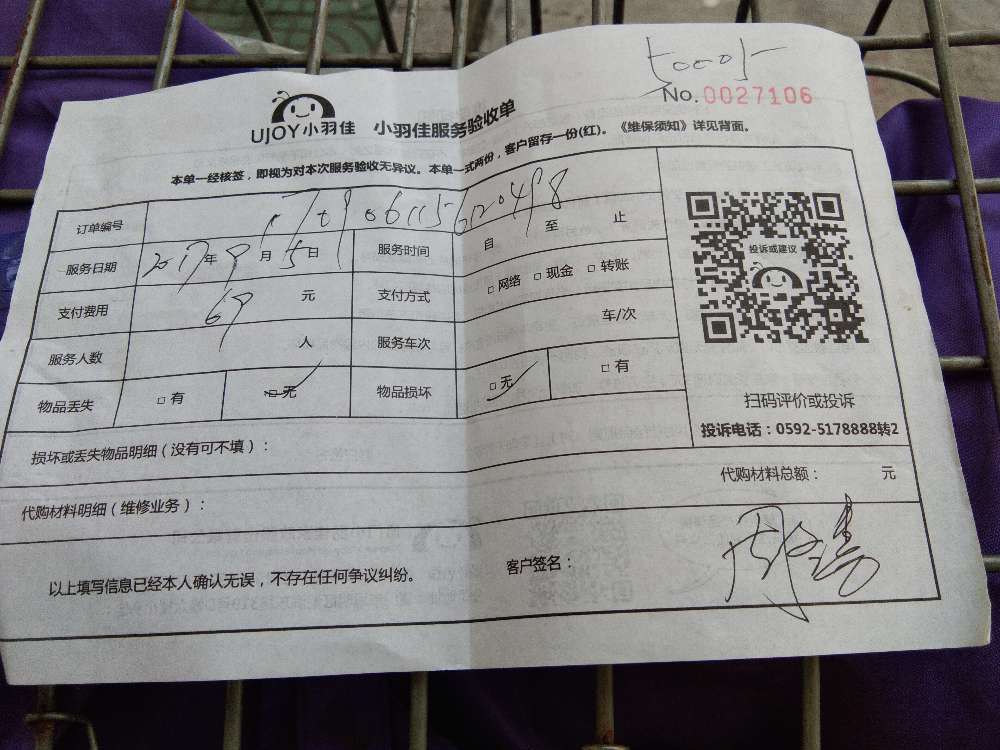 50005
No.0027106
UJOY小羽佳 小羽佳服务验收单
本单一经核签，即视为对本次服务验收无异议。本单一式两份，客户留存一份(红)。《维保须知》详见背面。
订单编号 1709061156120498
服务日期 2017年9月15日 服务时间 自 至 止
支付费用 69 元 支付方式 □网络 □现金 □转账
服务人数 人 服务车次 车/次
物品丢失 □有 □无 物品损坏 □无 □有
投诉或建议
扫码评价或投诉
投诉电话：0592-5178888转2
损坏或丢失物品明细（没有可不填）：
代购材料明细（维修业务）： 代购材料总额： 元
以上填写信息已经本人确认无误，不存在任何争议纠纷。 客户签名：